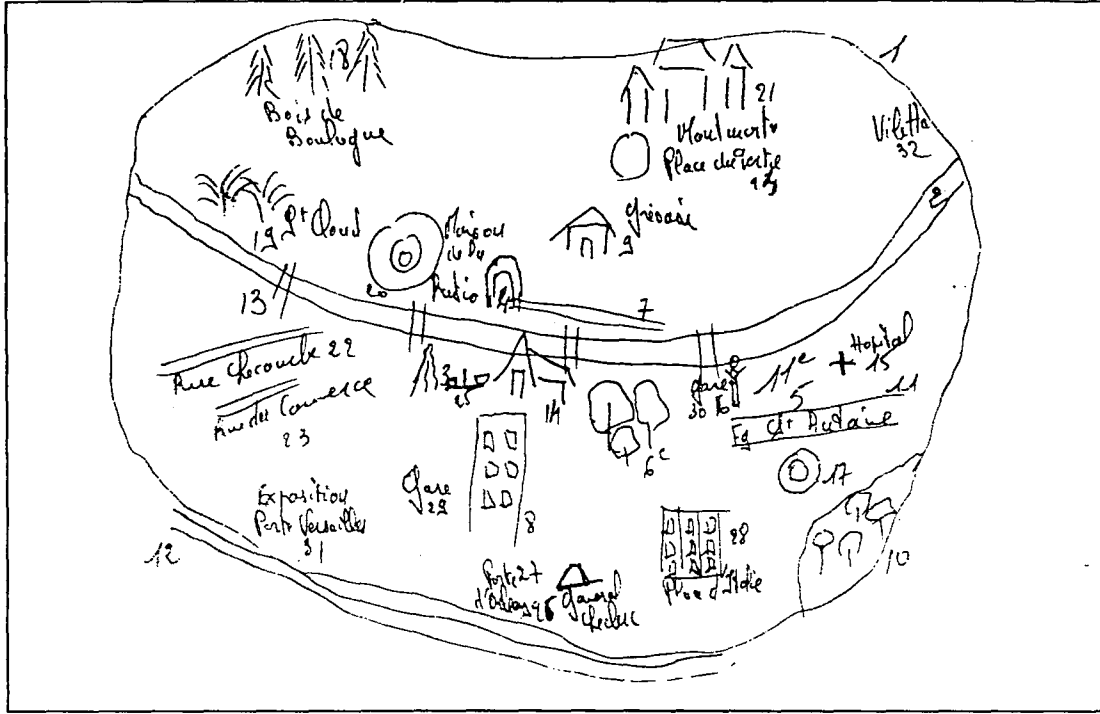 18
Bois de
Boulogne
1
21
Montmartre
Place du Tertre
Viletta
32
2
19 St Cloud
Maison
de la
Radio
20
4
9
7
13
Rue Lecourbe 22
Rue du Commerce
23
3
25
14
6
Gare
30
11e
Hopital
15
5
11
Fg St Antoine
17
Gare
29
8
Exposition
Porte Versailles
31
12
28
Place d'Italie
10
Porte 27
d'Orléans
General
Leclerc